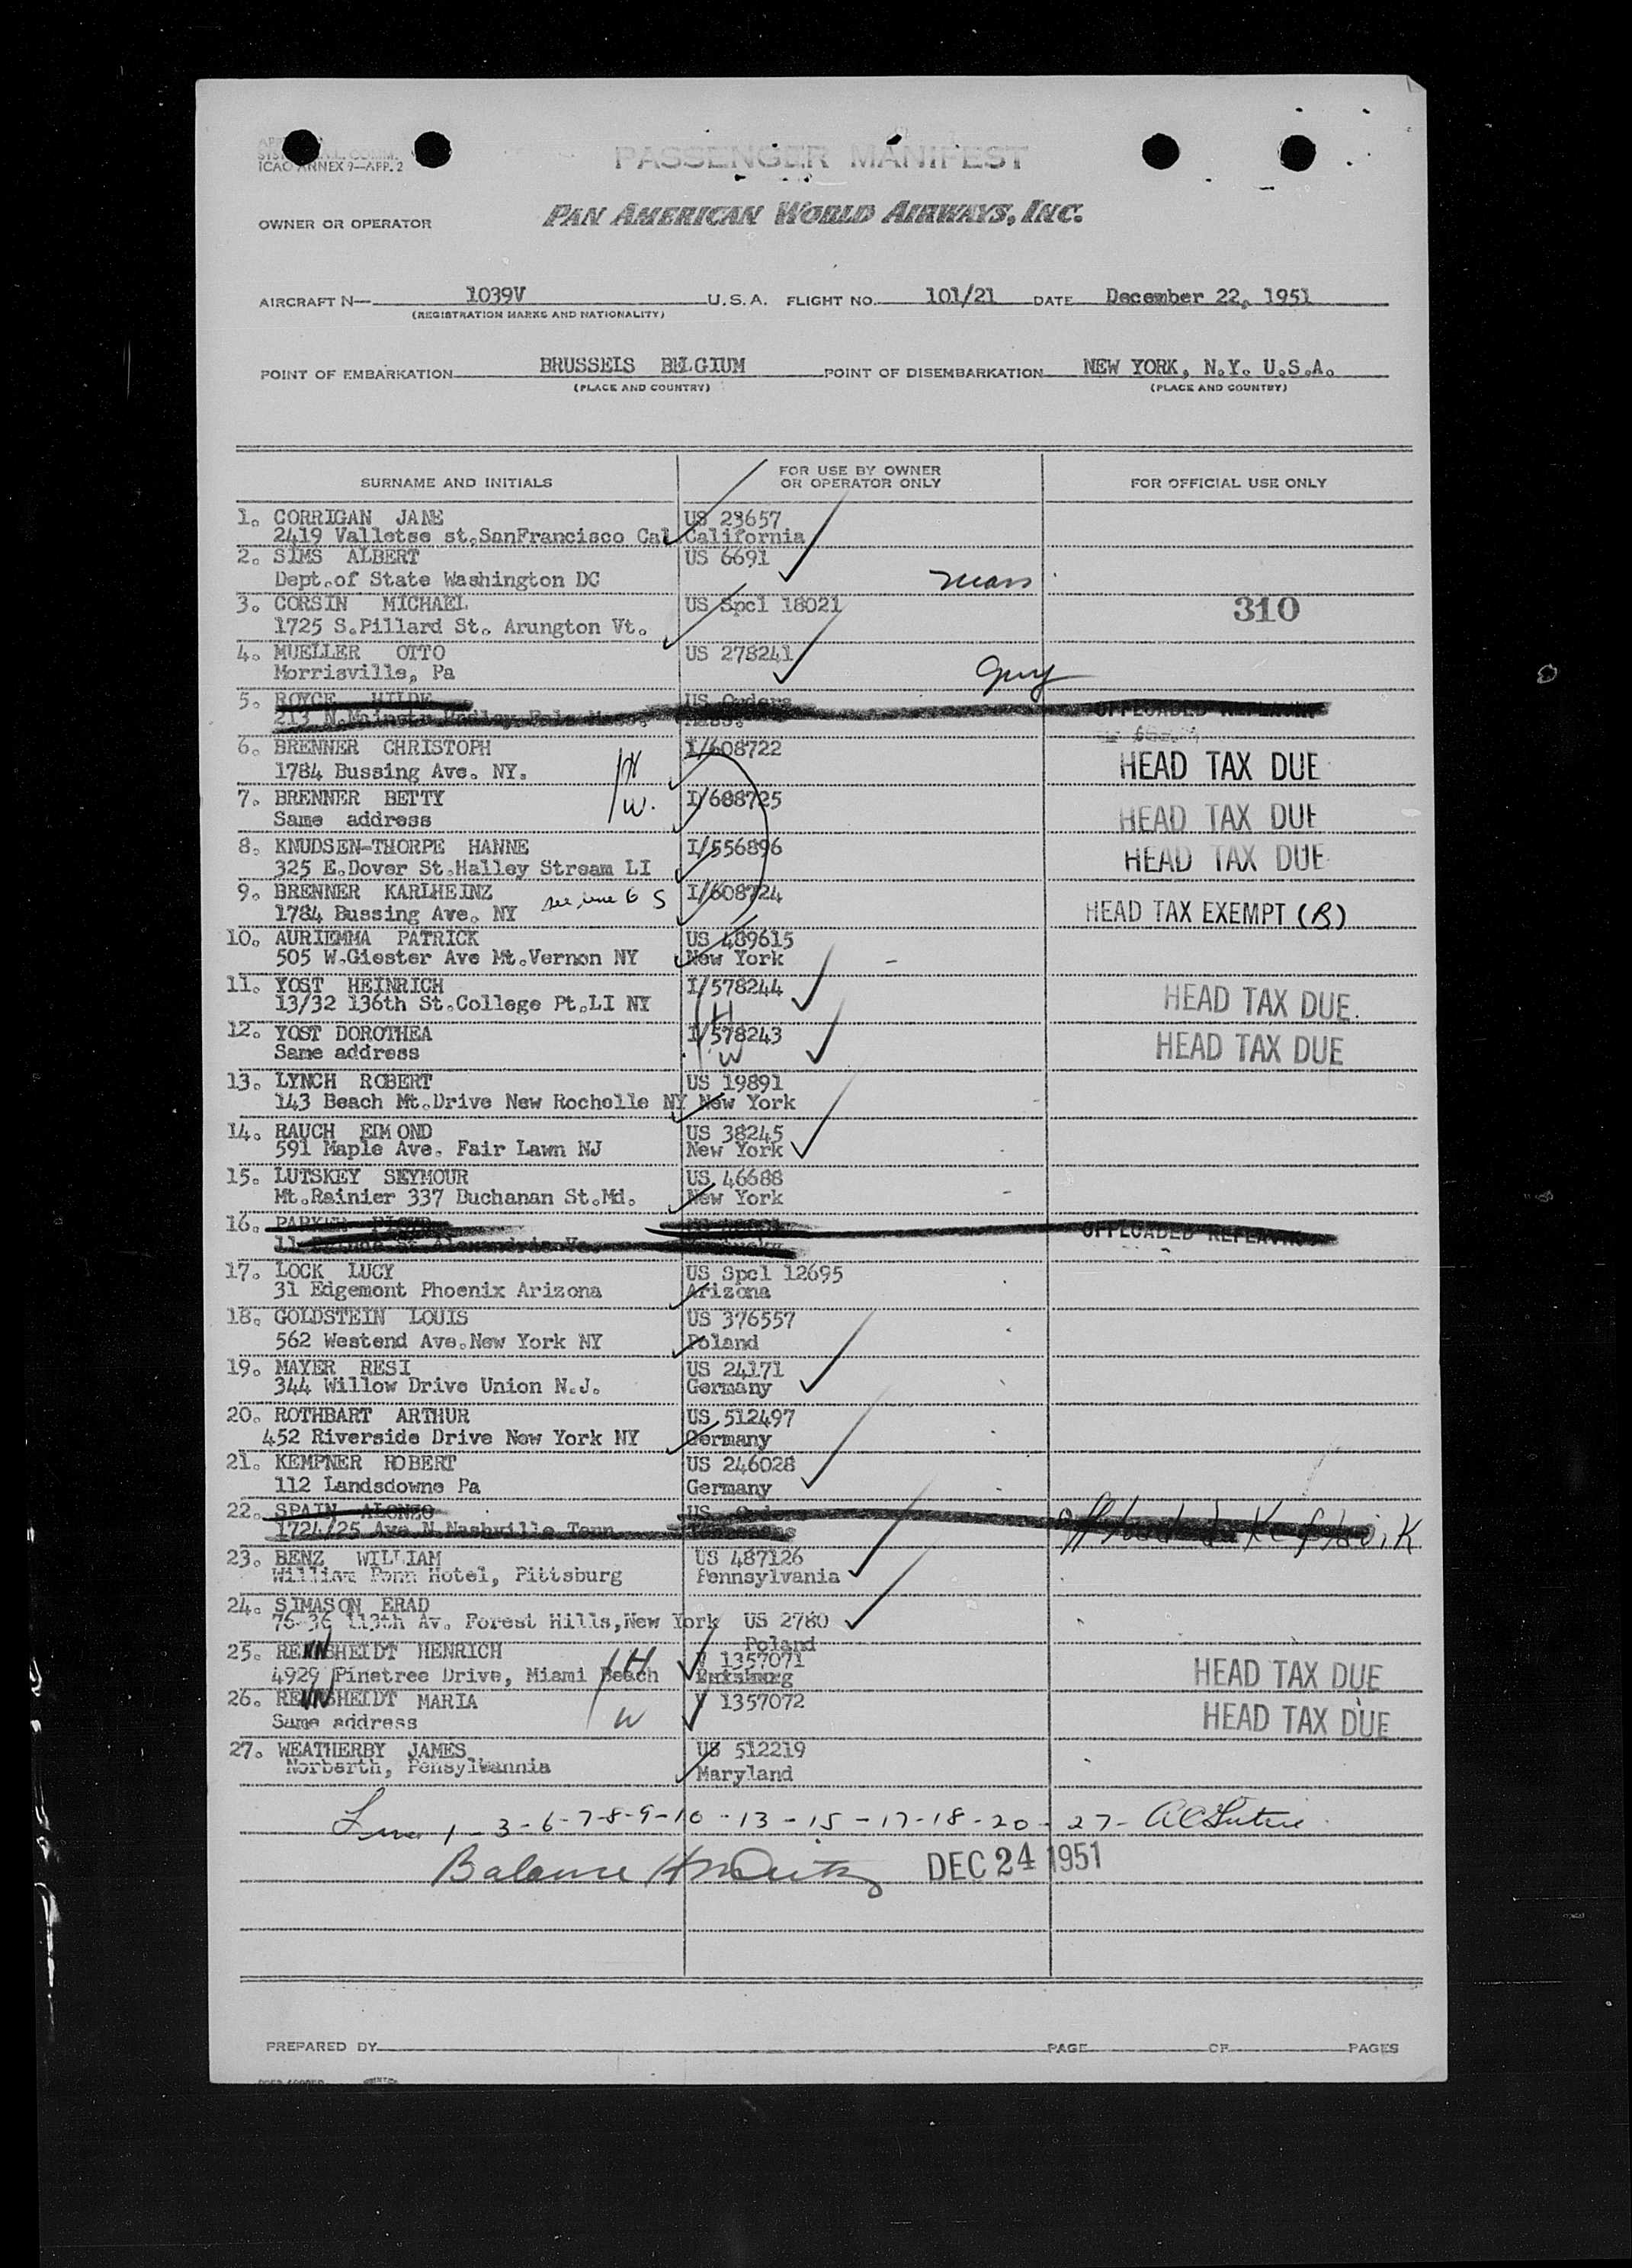 ICAO ANNEX 9—APP. 2
PASSENGER MANIFEST
OWNER OR OPERATOR
PAN AMERICAN WORLD AIRWAYS, INC.
AIRCRAFT N— 1039V U.S.A. FLIGHT NO. 101/21 DATE December 22, 1951
(REGISTRATION MARKS AND NATIONALITY)
POINT OF EMBARKATION BRUSSELS BELGIUM POINT OF DISEMBARKATION NEW YORK, N.Y. U.S.A.
(PLACE AND COUNTRY) (PLACE AND COUNTRY)
SURNAME AND INITIALS
FOR USE BY OWNER
OR OPERATOR ONLY
FOR OFFICIAL USE ONLY
1. CORRIGAN JANE US 23657
2419 Valletse st.SanFrancisco Cal California
2. SIMS ALBERT US 6691
Dept.of State Washington DC Mass
3. CORSIN MICHAEL US Spcl 18021 310
1725 S.Pillard St. Arungton Vt.
4. MUELLER OTTO US 278241
Morrisville, Pa Gmy
5. ROYCE HILDE US Orders
213 N. Mass. OFFLOADED
6. BRENNER CHRISTOPH I/608722
1784 Bussing Ave. NY. H HEAD TAX DUE
7. BRENNER BETTY W. I/688725
Same address HEAD TAX DUE
8. KNUDSEN-THORPE HANNE I/556896 HEAD TAX DUE
325 E.Dover St.Halley Stream LI
9. BRENNER KARLHEINZ see line 6 S I/608724
1784 Bussing Ave. NY HEAD TAX EXEMPT (B)
10. AURIEMMA PATRICK US 489615
505 W.Giester Ave Mt.Vernon NY New York
11. YOST HEINRICH I/578244 HEAD TAX DUE
13/32 136th St.College Pt.LI NY H
12. YOST DOROTHEA I/578243
Same address W HEAD TAX DUE
13. LYNCH ROBERT US 19891
143 Beach Mt.Drive New Rochelle NY New York
14. RAUCH EIMOND US 38245
591 Maple Ave. Fair Lawn NJ New York
15. LUTSKEY SEYMOUR US 46688
Mt.Rainier 337 Buchanan St.Md. New York
16. PARKER FLOYD OFFLOADED
11 Alexandria Va.
17. LOCK LUCY US Spcl 12695
31 Edgemont Phoenix Arizona Arizona
18. GOLDSTEIN LOUIS US 376557
562 Westend Ave.New York NY Poland
19. MAYER RESI US 24171
344 Willow Drive Union N.J. Germany
20. ROTHBART ARTHUR US 512497
452 Riverside Drive New York NY Germany
21. KEMPNER ROBERT US 246028
112 Landsdowne Pa Germany
22. SPAIN ALONZO US
1724/25 Ave N.Nashville Tenn Keflavik
23. BENZ WILLIAM US 487126
William Penn Hotel, Pittsburg Pennsylvania
24. SIMASON ERAD
76-36 113th Av. Forest Hills,New York US 2780
Poland
25. RENNSHEIDT HENRICH V 1357071
4929 Pinetree Drive, Miami Beach H HEAD TAX DUE
26. RENNSHEIDT MARIA V 1357072
Same address W HEAD TAX DUE
27. WEATHERBY JAMES US 512219
Norberth, Pensylwannia Maryland
Line 1-3-6-7-8-9-10-13-15-17-18-20-27-
Balance DEC 24 1951
PREPARED BY PAGE OF PAGES